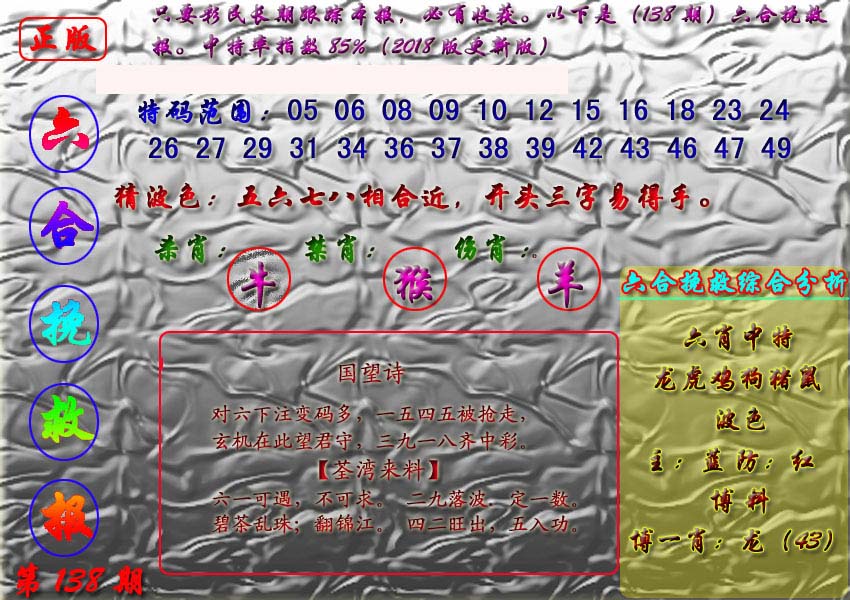 正版
只要彩民长期跟踪本报，必有收获。以下是（138期）六合挽救
报。中特率指数85%（2018版更新版）
六
合
挽
救
报
第138期
特码范围：05 06 08 09 10 12 15 16 18 23 24
26 27 29 31 34 36 37 38 39 42 43 46 47 49
猜波色：五六七八相合近，开头三字易得手。
杀肖： 禁肖： 伤肖：。
牛 猴 羊
国望诗
对六下注变码多，一五四五被抢走，
玄机在此望君守，三九一八齐中彩。
【荃湾来料】
六一可遇，不可求。 二九落波．定一数。
碧茶乱珠；翻锦江。 四二旺出，五入功。
六合挽救综合分析
六肖中特
龙虎鸡狗猪鼠
波色
主：蓝防：红
博料
博一肖：龙（43）